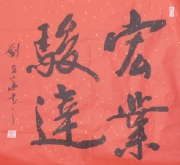 宏業
駿達